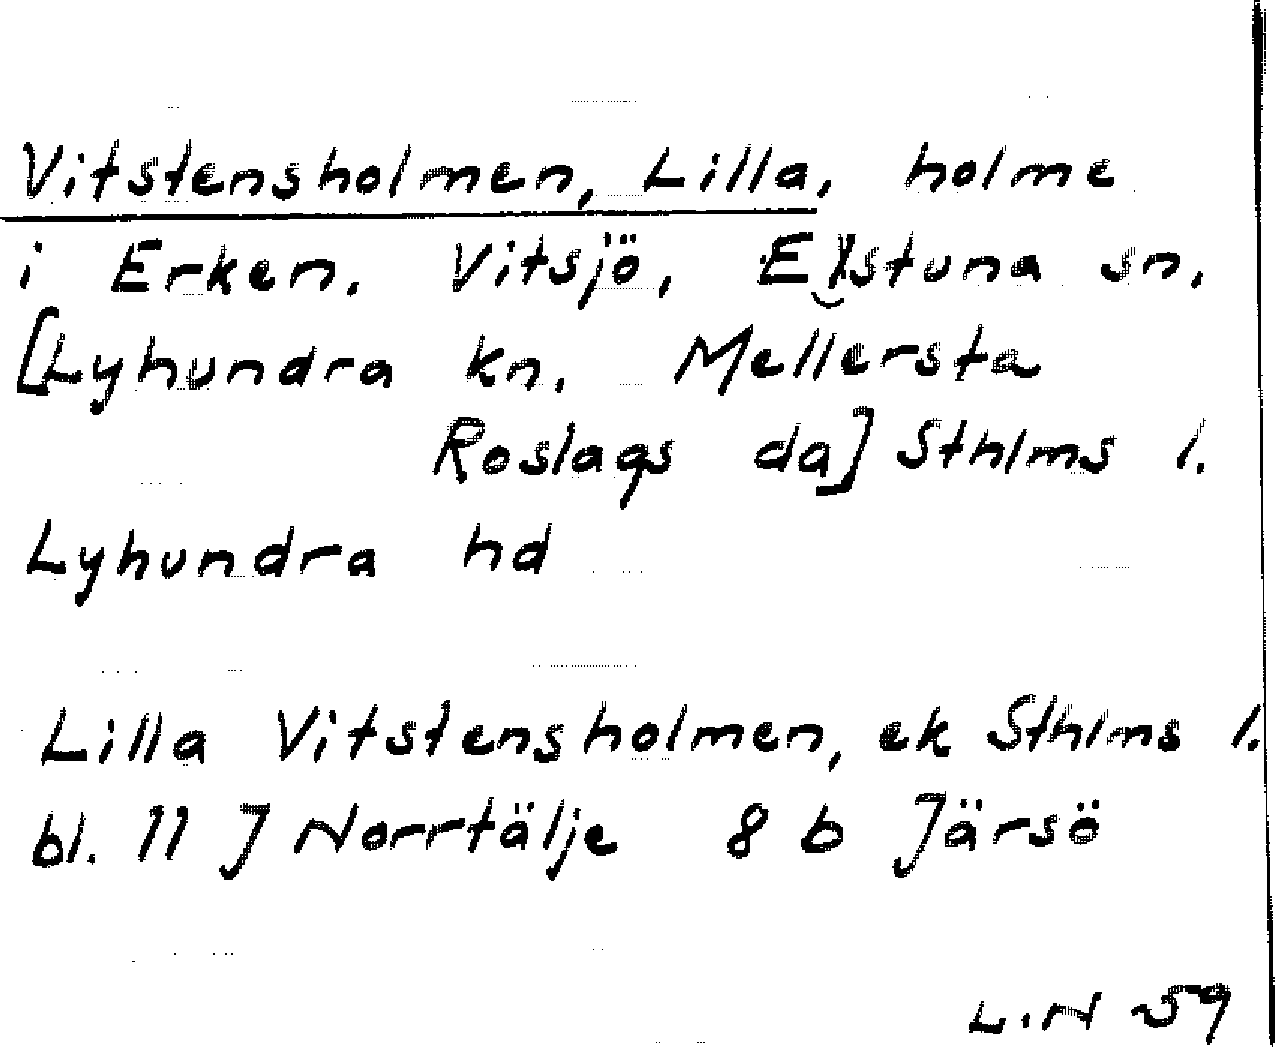 Vitstensholmen, Lilla, holme
i Erken. Vitsjö, Estuna sn.
[Lyhundra kn. Mellersta
Roslags da] Sthlms l.
Lyhundra hd
Lilla Vitstensholmen, ek Sthlms l.
bl. 11 J Norrtälje 8 b Järsö
L.N 59